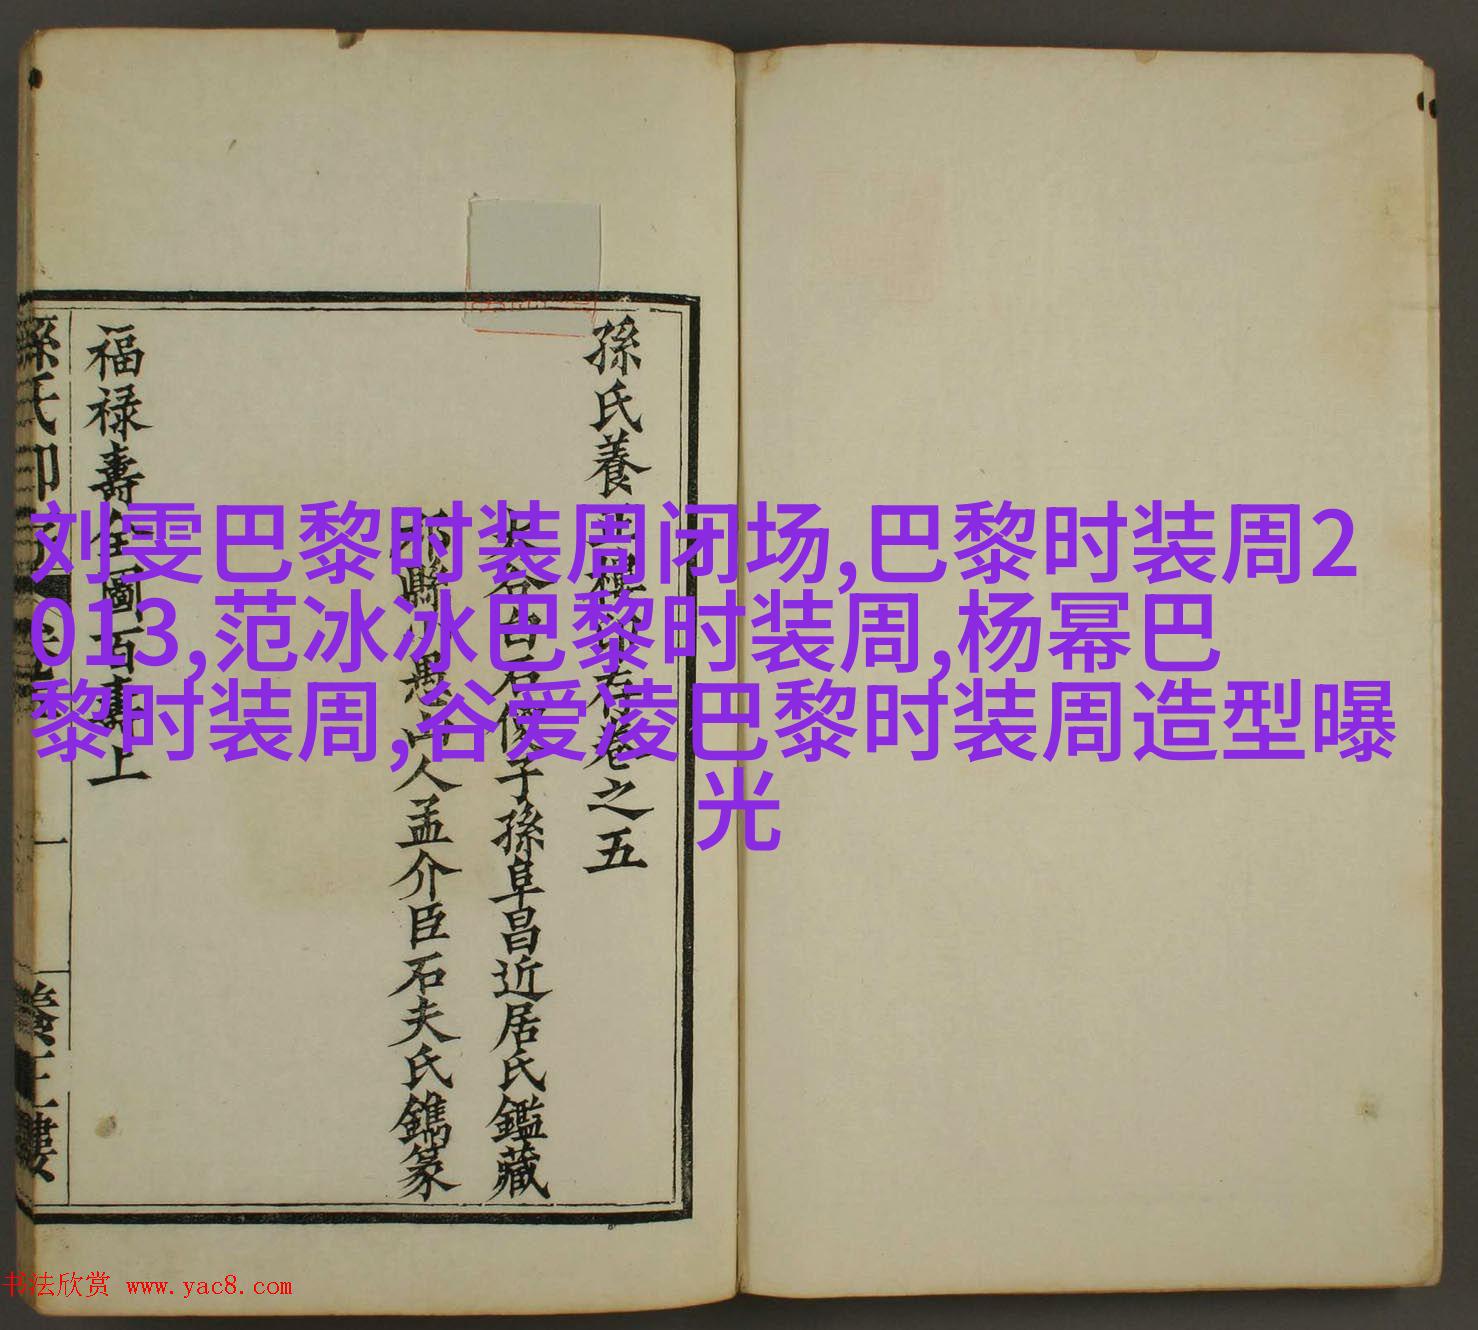 刘雯巴黎时装周闭场,巴黎时装周2
013,范冰冰巴黎时装周,杨幂巴
黎时装周,谷爱凌巴黎时装周造型曝
光
孫氏養正樓印存卷之五
子孫阜昌近居氏鑑藏
愚山人孟介臣石夫氏鐫篆
福祿壽全圖百壽上
孫氏印
養正樓
书法欣赏 www.yac8.com